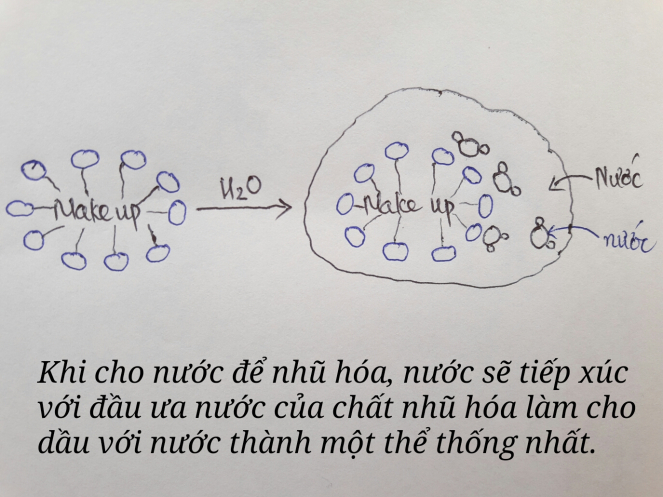 Make up
H₂O
Make up
Nước
nước
Khi cho nước để nhũ hóa, nước sẽ tiếp xúc
với đầu ưa nước của chất nhũ hóa làm cho
dầu với nước thành một thể thống nhất.